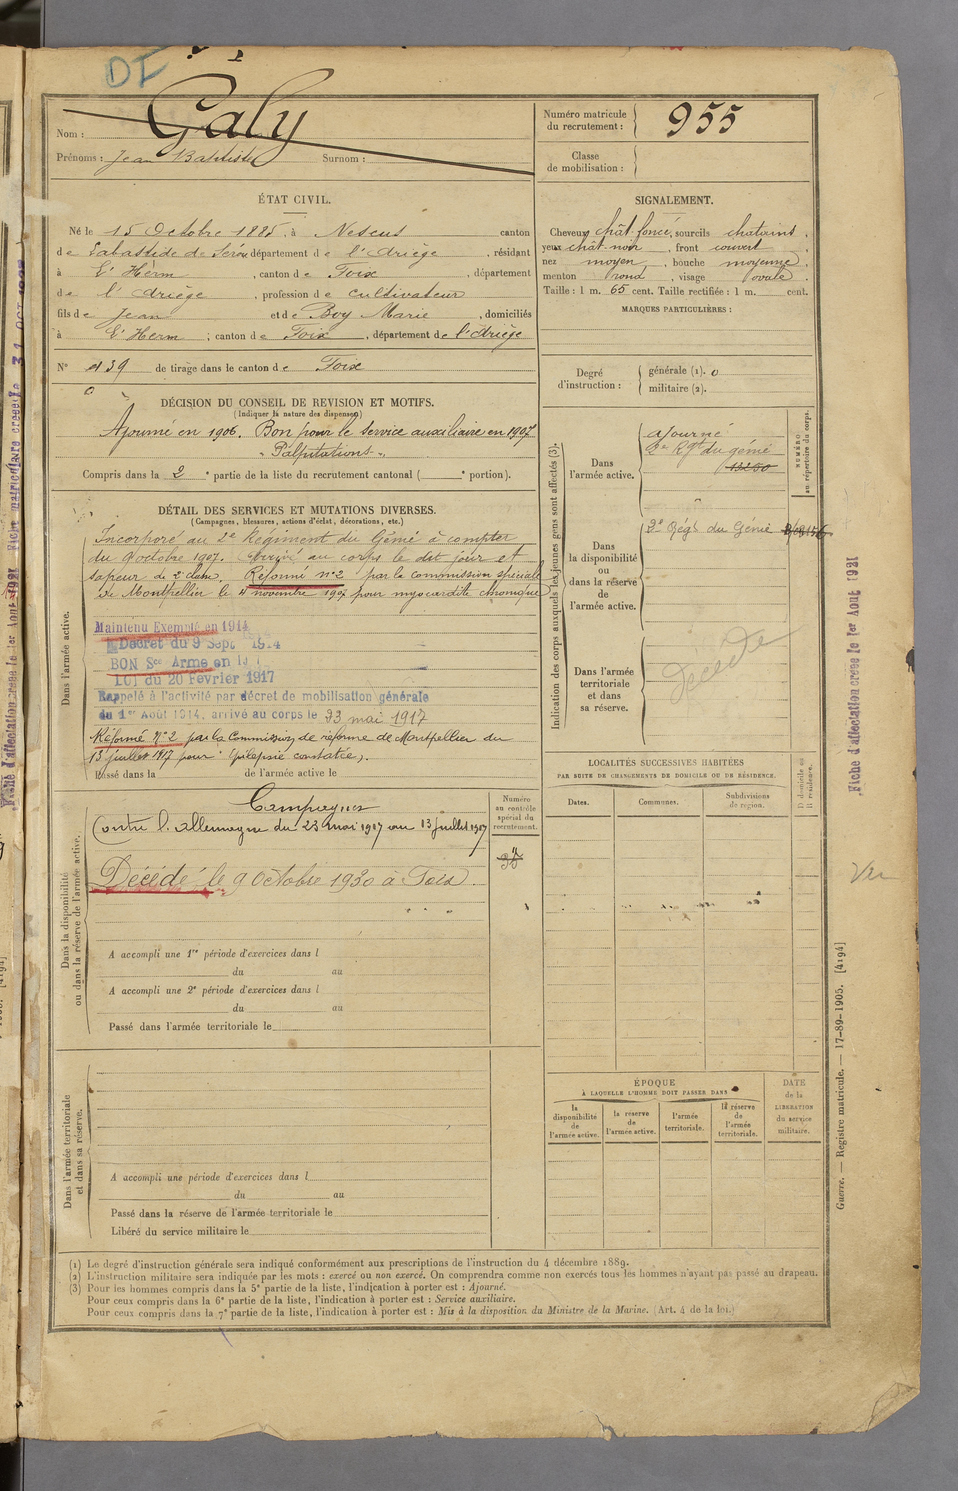 DI
Nom : Galy
Prénoms : Jean Baptiste Surnom :
Numéro matricule du recrutement : 955
Classe de mobilisation :
ÉTAT CIVIL.
Né le 15 Octobre 1885, à Nescus canton
de Labastide de Sérou département de l'Ariège, résidant
à L'Herm, canton de Foix, département
de l'Ariège, profession de cultivateur
fils de Jean et de Boy Marie, domiciliés
à L'Herm ; canton de Foix, département de l'Ariège
N° 139 de tirage dans le canton de Foix
SIGNALEMENT.
Cheveux chât. foncé, sourcils chatains,
yeux chât-noir, front couvert,
nez moyen, bouche moyenne,
menton rond, visage ovale.
Taille : 1 m. 65 cent. Taille rectifiée : 1 m. cent.
MARQUES PARTICULIÈRES :
Degré d'instruction : générale (1). 0
militaire (2).
DÉCISION DU CONSEIL DE REVISION ET MOTIFS.
(Indiquer la nature des dispenses)
Ajourné en 1906. Bon pour le service auxiliaire en 1907
"Palpitations".
Compris dans la 2e partie de la liste du recrutement cantonal ( e portion).
DÉTAIL DES SERVICES ET MUTATIONS DIVERSES.
(Campagnes, blessures, actions d'éclat, décorations, etc.)
Dans l'armée active.
Incorporé au 2e Régiment du Génie à compter
du 9 octobre 1907. Arrivé au corps le dit jour et
sapeur de 2e classe. Réformé n°2 par la commission spéciale
de Montpellier le 4 novembre 1907 pour myocardite chronique
Maintenu Exempté en 1914
Décret du 9 Sept 1914
BON Sce Armé en
Loi du 20 Février 1917
Rappelé à l'activité par décret de mobilisation générale
du 1er Août 1914, arrivé au corps le 23 mai 1917
Réformé N°2 par la Commission de réforme de Montpellier du
13 juillet 1917 pour "Epilepsie constatée".
Passé dans la de l'armée active le
Dans la disponibilité ou dans la réserve de l'armée active.
Campagnes
Contre l'Allemagne du 23 mai 1917 au 13 juillet 1917
Décédé le 9 Octobre 1930 à Foix.
A accompli une 1re période d'exercices dans l
du au
A accompli une 2e période d'exercices dans l
du au
Passé dans l'armée territoriale le
Numéro au contrôle spécial du recrutement.
Dans l'armée territoriale et dans sa réserve.
A accompli une période d'exercices dans l
du au
Passé dans la réserve de l'armée territoriale le
Libéré du service militaire le
Indication des corps auxquels les jeunes gens sont affectés (3).
NUMÉRO au répertoire du corps.
Dans l'armée active.
ajourné
2e Rgt du génie
Dans la disponibilité ou dans la réserve de l'armée active.
2e Régt du Génie
Dans l'armée territoriale et dans sa réserve.
Décédé
LOCALITÉS SUCCESSIVES HABITÉES
PAR SUITE DE CHANGEMENTS DE DOMICILE OU DE RÉSIDENCE.
Dates. Communes. Subdivisions de région. D domicile ou R résidence.
ÉPOQUE
À LAQUELLE L'HOMME DOIT PASSER DANS
la disponibilité de l'armée active.
la réserve de l'armée active.
l'armée territoriale.
la réserve de l'armée territoriale.
DATE de la LIBÉRATION du service militaire.
(1) Le degré d'instruction générale sera indiqué conformément aux prescriptions de l'instruction du 4 décembre 1889.
(2) L'instruction militaire sera indiquée par les mots : exercé ou non exercé. On comprendra comme non exercés tous les hommes n'ayant pas passé au drapeau.
(3) Pour les hommes compris dans la 5e partie de la liste, l'indication à porter est : Ajourné.
Pour ceux compris dans la 6e partie de la liste, l'indication à porter est : Service auxiliaire.
Pour ceux compris dans la 7e partie de la liste, l'indication à porter est : Mis à la disposition du Ministre de la Marine. (Art. 4 de la loi.)
Fiche d'affectation créée le 1er Aout 1921
Guerre. — Registre matricule. — 17-89-1905. [4194]
Fiche d'affectation créée le 1er Aout 1921